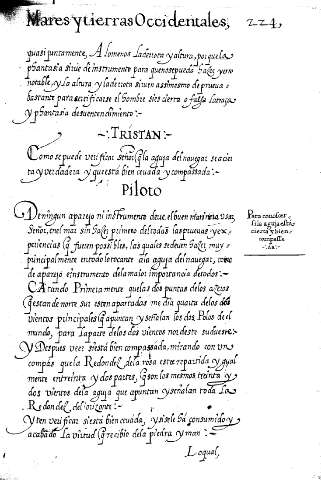 Mares y tierras Occidentales, 224,
quasi juntamente, A lo menos la derrota y altura, por que la
phantasia sirve de instrumento para que no se pueda hazer yerro
notable, y La altura y la derrota sirven assimesmo de prueva
bastante para certificarse el hombre si es cierta o falsa la traça
y phantasia de su entendimiento:-
-: TRISTAN :-
Como se puede verificar Señor si la aguja del navegar es cier
ta y verdadera y que esta bien cevada y compassada:-
Piloto
De ningun aparejo ni instrumento deve el buen marinero, usar,
Señor, en al mar sin hazer primero del todas las pruevas y ex
periencias que fueren posibles, las quales se deven hazer, muy
principalmente en todo lo tocante a la aguja de navegar, como
de aparejo e instrumento de la maior importancia de todos:-
CAtando Primeramente que las dos puntas de los azeros
que estan de norte sur esten apartados
vientos principales que apuntan y señalan los dos Polos del
mundo, para la parte de los dos vientos nordeste sudueste:-
Y Despues veer si esta bien compassada, mirando con un
compas que la Redondez de la rosa este repartida y ygual
mente en treinta y dos partes, que son los mesmos treinta y
dos vientos de la aguja que apuntan y señalan toda la
Redondez del orizonte:-
Y en ver si esta bien cevada, y si se le ha consumido y
acabado la virtud que recibio de la piedra yman:-
Lo qual,
Para conoscer
si la aguja esta bie
cierta y bien
compassa
da:-